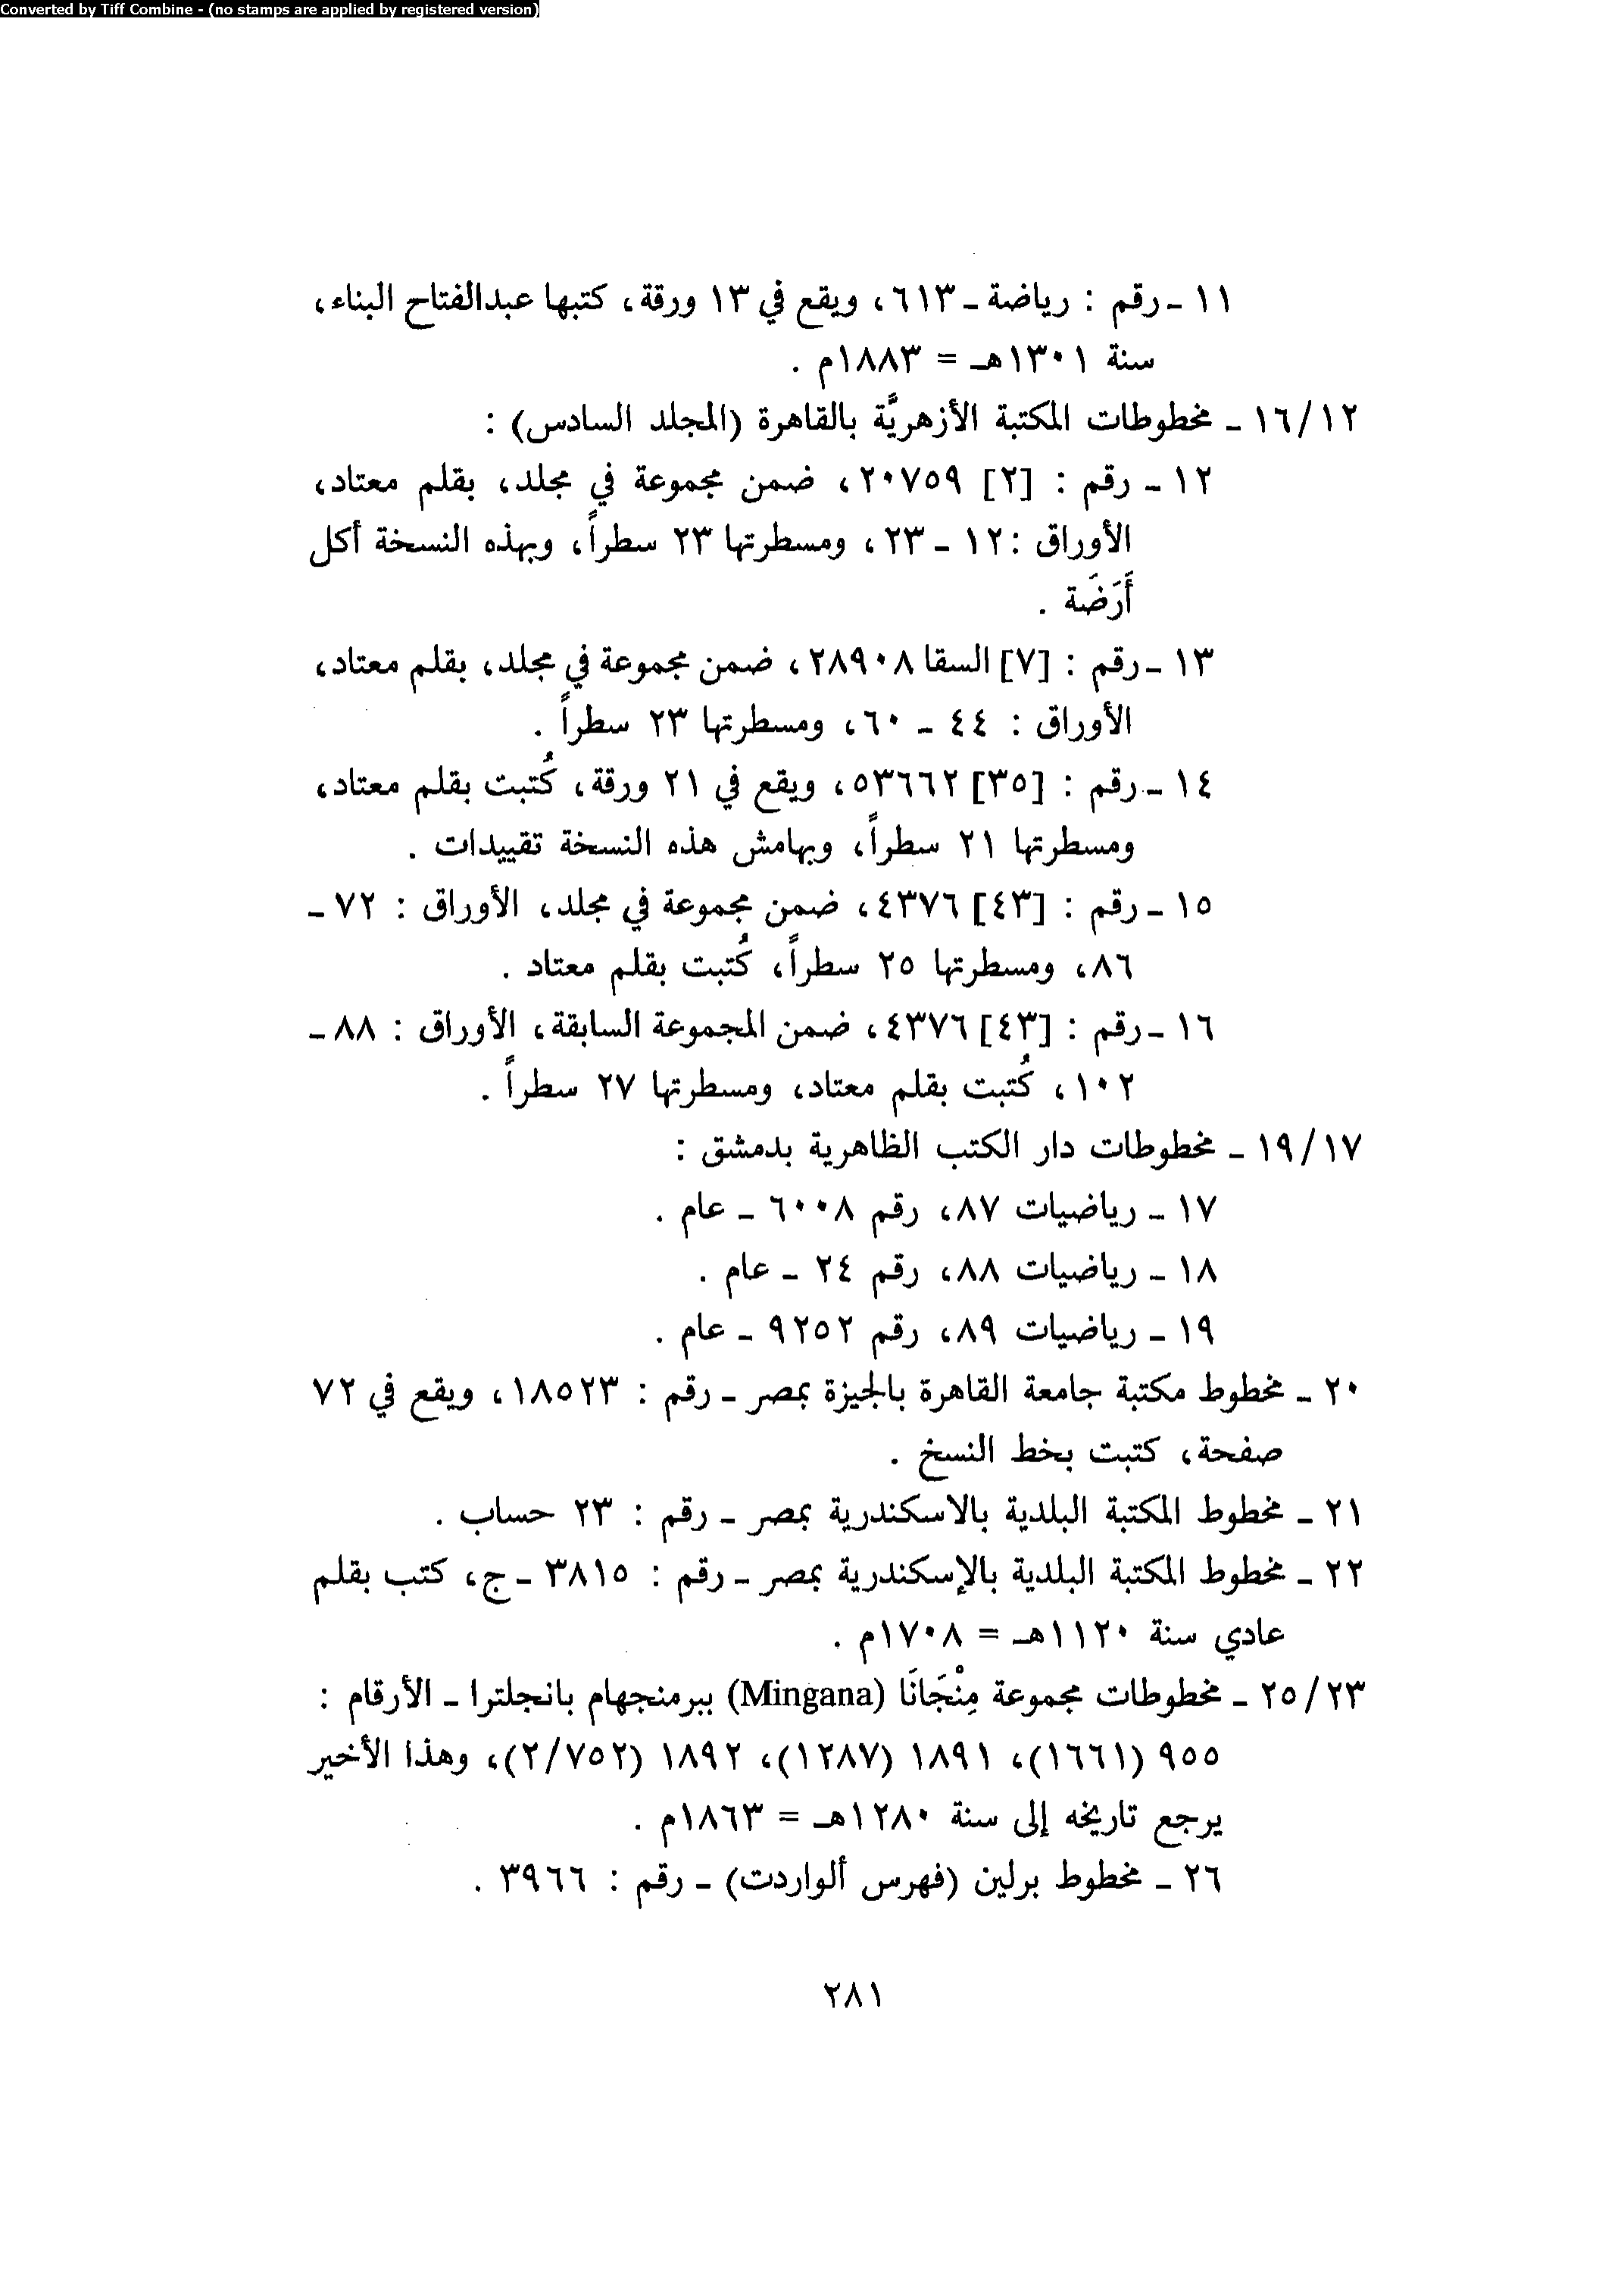 Converted by Tiff Combine - (no stamps are applied by registered version)
١١ - رقم : رياضة - ٦١٣، ويقع في ١٣ ورقة، كتبها عبدالفتاح البناء،
سنة ١٣٠١هـ = ١٨٨٣م .
١٦/١٢ - مخطوطات المكتبة الأزهريَّة بالقاهرة (المجلد السادس) :
١٢ - رقم : [٢] ٢٠٧٥٩، ضمن مجموعة في مجلد، بقلم معتاد،
الأوراق : ١٢ - ٢٣، ومسطرتها ٢٣ سطراً، وبهذه النسخة أكل
أَرَضَة .
١٣ - رقم : [٧] السقا ٢٨٩٠٨، ضمن مجموعة في مجلد، بقلم معتاد،
الأوراق : ٤٤ - ٦٠، ومسطرتها ٢٣ سطراً .
١٤ - رقم : [٣٥] ٥٣٦٦٢، ويقع في ٢١ ورقة، كُتبت بقلم معتاد،
ومسطرتها ٢١ سطراً، وبهامش هذه النسخة تقييدات .
١٥ - رقم : [٤٣] ٤٣٧٦، ضمن مجموعة في مجلد، الأوراق : ٧٢ -
٨٦، ومسطرتها ٢٥ سطراً، كُتبت بقلم معتاد .
١٦ - رقم : [٤٣] ٤٣٧٦، ضمن المجموعة السابقة، الأوراق : ٨٨ -
١٠٢، كُتبت بقلم معتاد، ومسطرتها ٢٧ سطراً .
١٩/١٧ - مخطوطات دار الكتب الظاهرية بدمشق :
١٧ - رياضيات ٨٧، رقم ٦٠٠٨ - عام .
١٨ - رياضيات ٨٨، رقم ٢٤ - عام .
١٩ - رياضيات ٨٩، رقم ٩٢٥٢ - عام .
٢٠ - مخطوط مكتبة جامعة القاهرة بالجيزة بمصر - رقم : ١٨٥٢٣، ويقع في ٧٢
صفحة، كتبت بخط النسخ .
٢١ - مخطوط المكتبة البلدية بالاسكندرية بمصر - رقم : ٢٣ حساب .
٢٢ - مخطوط المكتبة البلدية بالإسكندرية بمصر - رقم : ٣٨١٥ - ج، كتب بقلم
عادي سنة ١١٢٠هـ = ١٧٠٨م .
٢٥/٢٣ - مخطوطات مجموعة مِنْجَانَا (Mingana) ببرمنجهام بانجلترا - الأرقام :
٩٥٥ (١٦٦١)، ١٨٩١ (١٢٨٧)، ١٨٩٢ (٢/٧٥٢)، وهذا الأخير
يرجع تاريخه إلى سنة ١٢٨٠هـ = ١٨٦٣م .
٢٦ - مخطوط برلين (فهرس ألواردت) - رقم : ٣٩٦٦ .
٢٨١